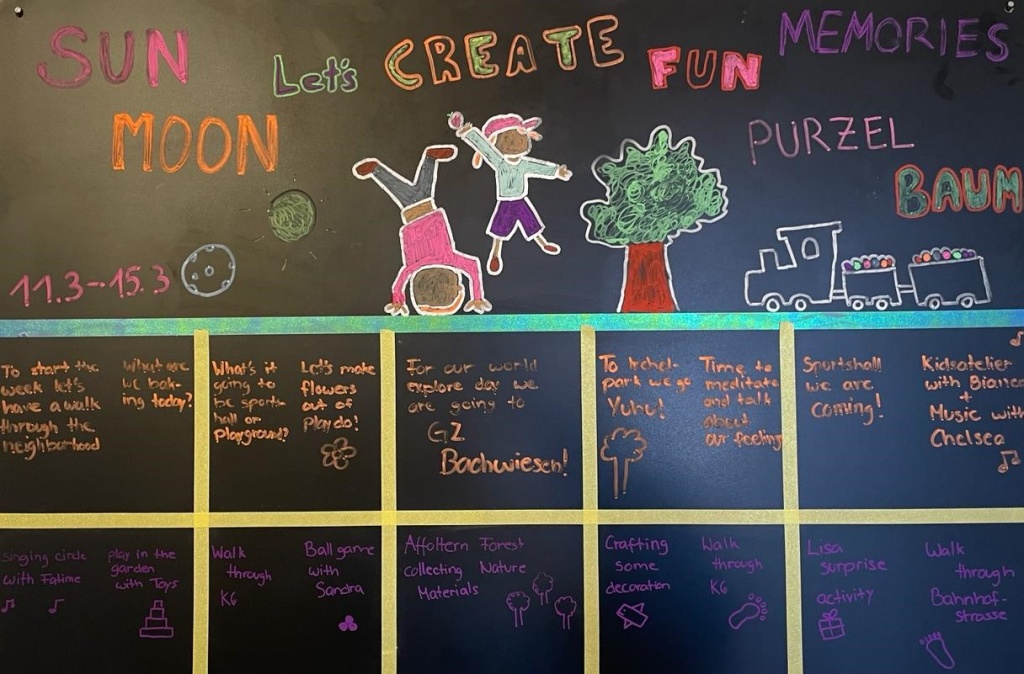 SUN
MOON
Let's CREATE FUN MEMORIES
PURZEL
BAUM
11.3-15.3
To start the
week let's
have a walk
through the
neighborhood
What are
we bak-
ing today?
What's it
going to
be sports-
hall or
Playground?
Let's make
flowers
out of
Playdo!
For our world
explore day we
are going to
GZ
Bachwiesen!
To Irchel-
park we go
Yuhu!
Time to
meditate
and talk
about
our feeling
Sportshall
we are
coming!
Kidsatelier
with Bianca
+
Music with
Chelsea
singing circle
with Fatime
play in the
garden
with Toys
Walk
through
K6
Ball game
with
Sandra
Affoltern Forest
collecting Nature
Materials
Crafting
some
decoration
Walk
through
K6
Lisa
surprise
activity
Walk
through
Bahnhof-
strasse